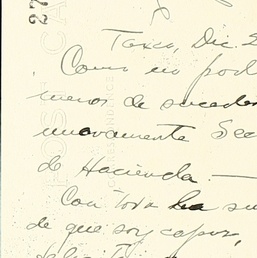 27
Taxco, Dic. 2
Como no pod
menos de suceder
nuevamente Sec
de Hacienda —
Con toda la su
de que soy capaz,